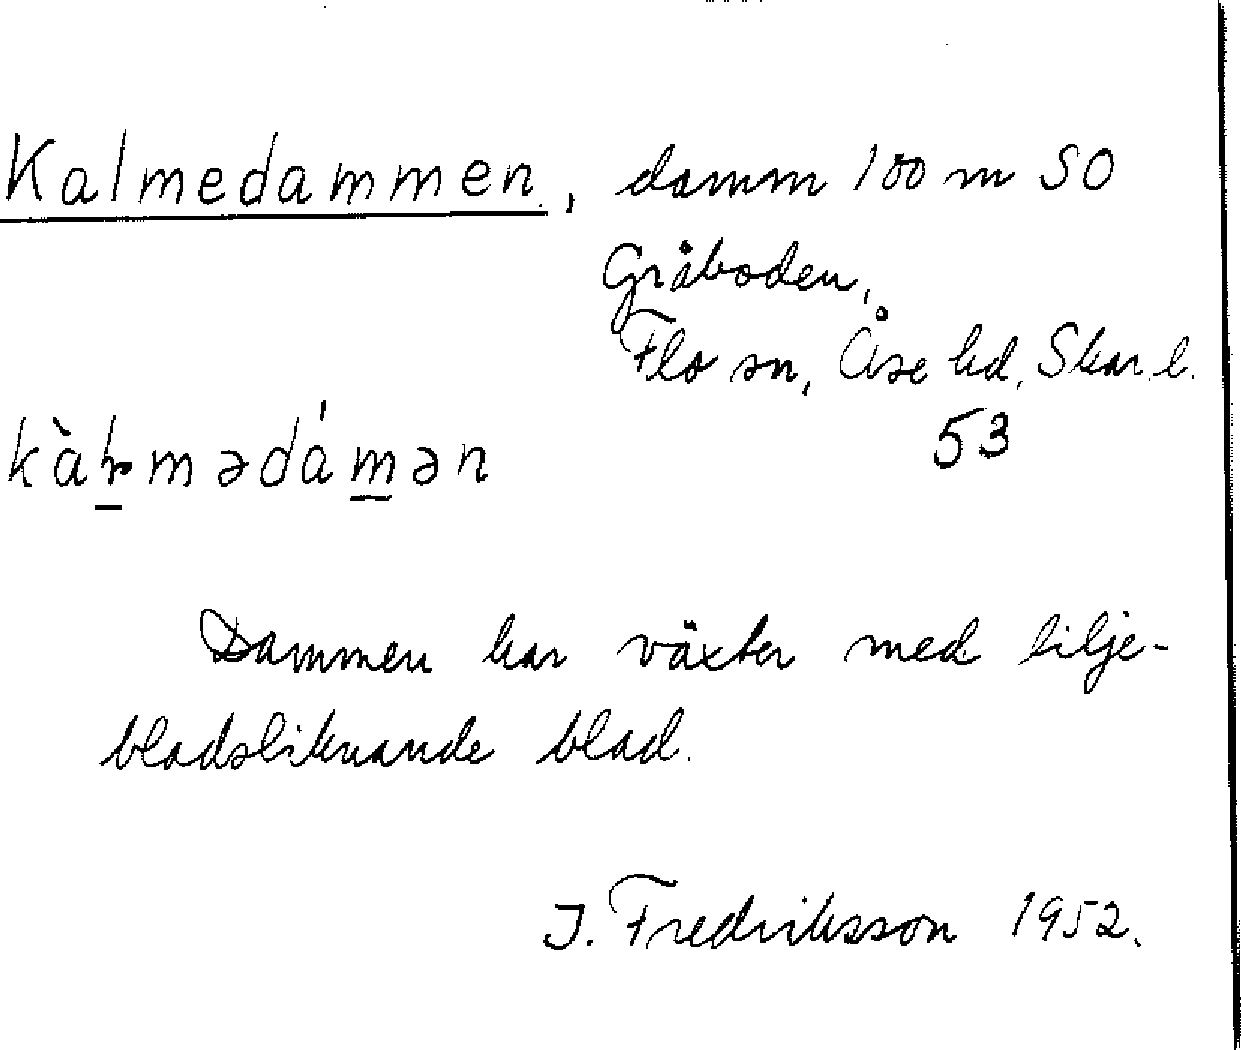 Kalmedammen, damm 100 m SO
Gråboden,
Flo sn, Åse hd, Skar.l.
53
Dammen har växter med lilje-
bladsliknande blad.
J. Fredriksson 1952.